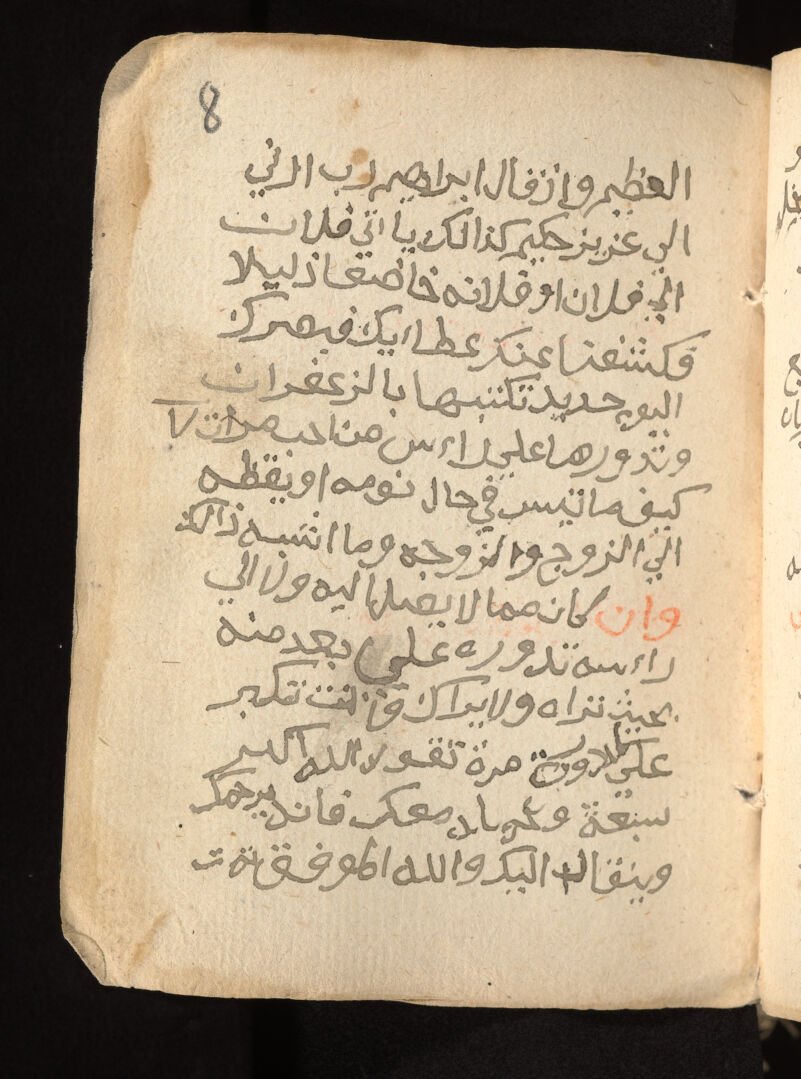 8
العظيم واذ قال ابراهيم رب ارني
الي عزيز حكيم كذالك يا اتي فلان
الي فلان او فلانه خاضعا ذليلا
فكشفنا عنك غطاءيك فبصرك
اليوم حديد تكتبها بالزعفران
وتدورها علي راءس من احب مرات لا
كيف ما تيسر في حال نومه او يقظه
الي الزوج والزوجه وما اشبه ذالك
وان كان مما لا يصل اليه ولا الي
راءسه تدوره علي بعد منه
بحيث تراه ولا يراك فانت تكبر
علي مرة تقول الله اكبر
سبعة معك فانه يرحمك
وينقاد اليك والله الموفق تمت